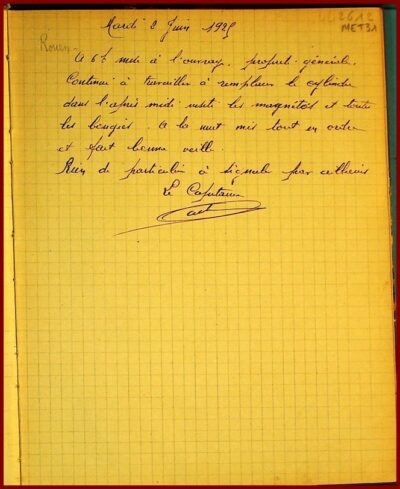 Mardi 2 Juin 1925
Rouen
MET31
A 6h mis à l'ouvrage, propreté générale.
Continué à travailler à remplacer le cylindre
dans l'après midi visité les magnétos et toutes
les bougies. A la nuit mis tout en ordre
et fait bonne veille.
Rien de particulier à signaler par ailleurs
Le Capitaine